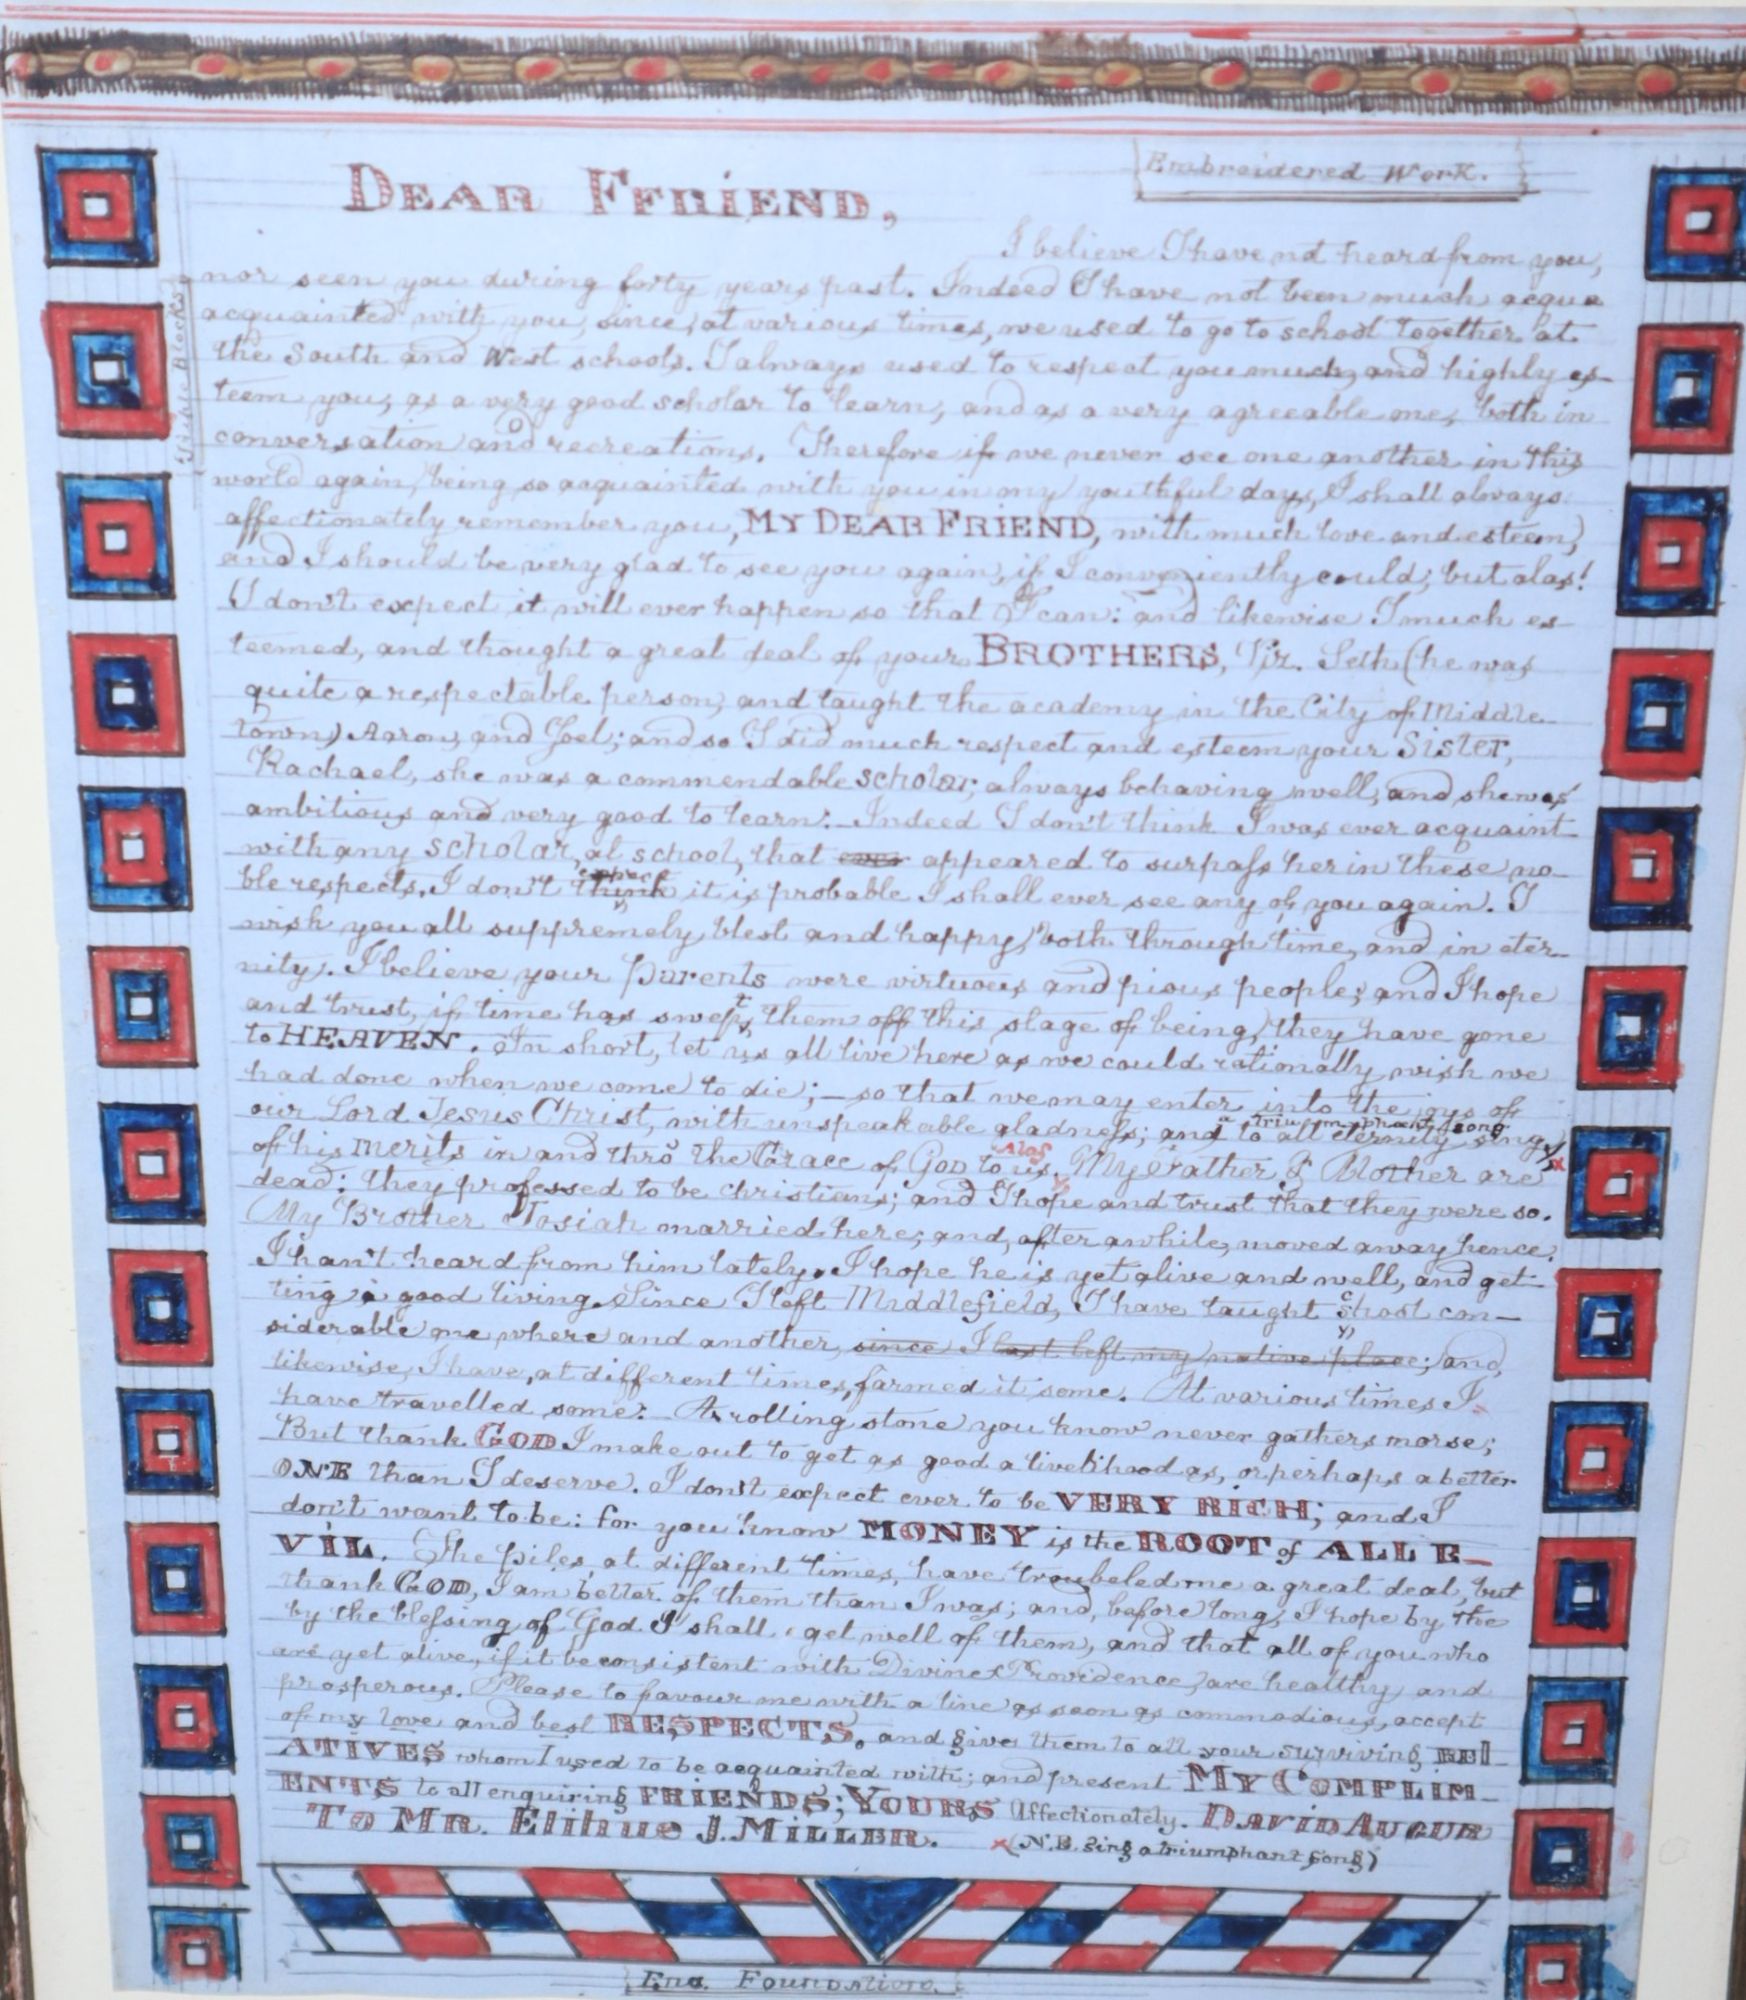 Embroidered Work.
DEAR FFRIEND,
I believe I have not heard from you,
nor seen you during forty years past. Indeed I have not been much acqua
acquainted with you, since, at various times, we used to go to school together at
the South and West schools. I always used to respect you much, and highly es-
teem you, as a very good scholar to learn, and as a very agreeable one, both in
conversation and recreations. Therefore if we never see one another in this
world again, being so acquainted with you in my youthful days, I shall always
affectionately remember you, MY DEAR FRIEND, with much love and esteem,
and I should be very glad to see you again, if I conveniently could; but alas!
I don't expect it will ever happen so that I can: and likewise I much es-
teemed, and thought a great deal of your BROTHERS, Viz. Seth (he was
quite a respectable person, and taught the academy in the City of Middle-
town) Aaron, and Joel; and so I did much respect and esteem your Sister,
Rachael, she was a commendable scholar; always behaving well, and she was
ambitious and very good to learn:_Indeed I don't think I was ever acquaint
with any scholar, at school, that ever appeared to surpass her in these no-
ble respects. I don't think expect it is probable I shall ever see any of you again. I
wish you all suppremely blest and happy, both through time, and in eter-
nity. I believe your parents were virtuous and pious people; and I hope
and trust, if time has swept them off this stage of being, they have gone
to HEAVEN. In short, let us all live here as we could rationally wish we
had done when we come to die;_so that we may enter into the joys of
our Lord Jesus Christ, with unspeakable gladness; and to all eternity sing a triumphant song
of his merits in and thro the Grace of GOD to us. Alas My Father & Mother are
dead: they professed to be christians; and I hope and trust that they were so.
My Brother Josiah married here; and, after awhile, moved away hence.
I han't heard from him lately. I hope he is yet alive and well, and get-
ting a good living. Since I left Middlefield, I have taught school con-
siderable one where and another, since I last left my native place; and,
likewise, I have, at different times, farmed it some. At various times I
have travelled some:_A rolling stone you know never gathers morse;
But thank GOD I make out to get as good a livelihood as, or perhaps a better
ONE than I deserve. I don't expect ever to be VERY RICH; and I
don't want to be: for you know MONEY is the ROOT of ALL E-
VIL. The piles, at different times, have troubeled me a great deal, but
thank GOD, I am better of them than I was; and, before long, I hope by the
by the blessing of God I shall get well of them, and that all of you who
are yet alive, if it be consistent with Divine Providence, are healthy and
prosperous. Please to favour me with a line as soon as commodious, accept
of my love and best RESPECTS, and give them to all your surviving REL
ATIVES whom I used to be acquainted with; and present MY COMPLIM-
ENTS to all enquiring FRIENDS; YOURS Affectionately. DAVID AUGUR
TO MR. Elihue J. MILLER. x (N.B. sing a triumphant song)
End. FOUNDATION.